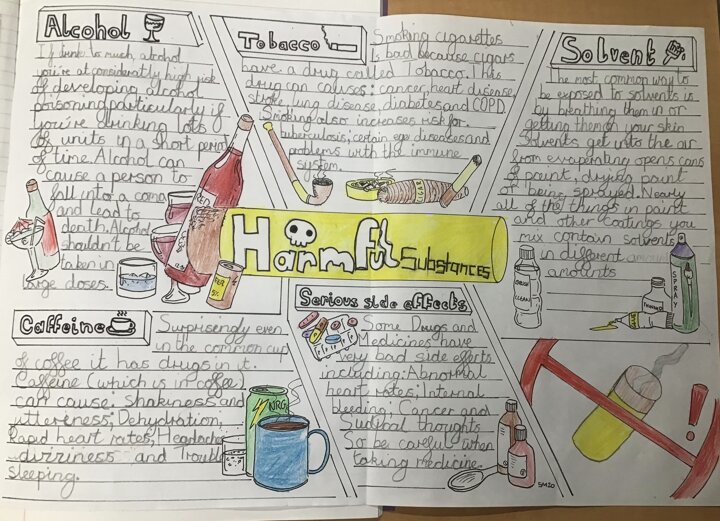 Alcohol
If drink to much, alcohol
you're at considerably high risk
of developing alcohol
poisoning particularly if
you're drinking lots
of units in a short period
of time. Alcohol can
cause a person to
fall into a coma
and lead to
death. Alcohol
shouldn't be
taken in
large doses.
BEER
5%
Tobacco
Smoking cigarettes
is bad because cigars
have a drug called Tobacco. This
drug can causes: cancer, heart disease,
stroke, lung disease, diabetes, and COPD.
Smoking also increases risk for
tuberculosis, certain eye diseases and
problems with the immune
system.
CIGAR
Solvent
The most common way to
be exposed to solvents is
by breathing them in or
getting them on your skin
Solvents get into the air
from evaporating opens cans
of paint, drying paint
or being sprayed. Nearly
all of the things in paint
and other coatings you
mix contain solvents
in different amounts
amounts
CLEAN
THINNER
GLUE
SPRAY
Harmful Substances
Caffeine
Surprisingly even
in the common cup
of coffee it has drugs in it.
Caffeine (which is in coffee)
can cause: shakiness and
jittereness; Dehydration;
Rapid heart rates; Headaches
dizziness and Trouble
sleeping.
NRG
Serious side effects
Some Drugs and
Medicines have
very bad side effects
including: Abnormal
heart rates; Internal
bleeding; Cancer and
Suicidal thoughts
So be careful when
taking medicine.
SM20
!